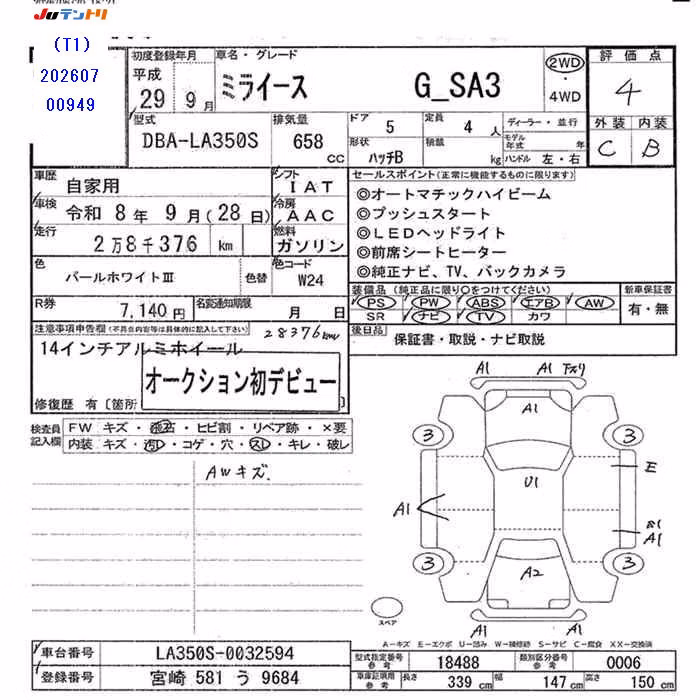 JUテントリ
(T1)
202607
00949
初度登録年月
平成
29 9 月
車名・グレード
ミライース G_SA3
2WD
・
4WD
評価点
4
外装 内装
C B
型式
DBA-LA350S
排気量
658
CC
ドア
5
定員
4 人
形状
ハッチB
積載
kg
ディーラー・並行
モデル年式 年
ハンドル 左・右
車歴
自家用
シフト
IAT
車検
令和 8 年 9 月 (28 日)
冷房
AAC
走行
2 万 8 千 376 km
燃料
ガソリン
色
パールホワイトⅢ
色替
色コード
W24
R券
7,140 円
名変通知期限
月 日
セールスポイント(正常に機能するものに限ります)
◎オートマチックハイビーム
◎プッシュスタート
◎LEDヘッドライト
◎前席シートヒーター
◎純正ナビ、TV、バックカメラ
装備品 (純正品に限り○をつけてください)
PS PW ABS エアB AW
SR ナビ TV カワ
新車保証書
有・無
後日品
保証書・取説・ナビ取説
注意事項申告欄(不具合内容等は具体的に記入して下さい)
28376km
14インチアルミホイール
オークション初デビュー
修復歴 有〔箇所
検査員記入欄
FW キズ・飛石・ヒビ割・リペア跡・×要
内装 キズ・汚れ・コゲ・穴・スレ・キレ・破レ
AWキズ.
A1 A1 下スリ
A1
3 3
E
U1
A1
A1
3 3
A2
A1 A1
スペア
A－キズ E－エクボ U－凹み W－補修跡 S－サビ C－腐食 XX－交換済
車台番号
LA350S-0032594
登録番号
宮崎 581 う 9684
型式指定番号
参考
18488
類別区分番号
参考
0006
車庫証明用
参考
長さ 339 cm 幅 147 cm 高さ 150 cm